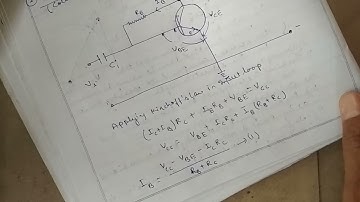 R_B
I_B
V_CE
C_1
V_BE
E
Applying Kirchoff's law in Input loop
(I_C+I_B)R_C + I_B R_B + V_BE = V_CC
V_CC = V_BE + I_C R_C + I_B(R_B+R_C)
I_B = V_CC - V_BE - I_C R_C / R_B + R_C → (1)